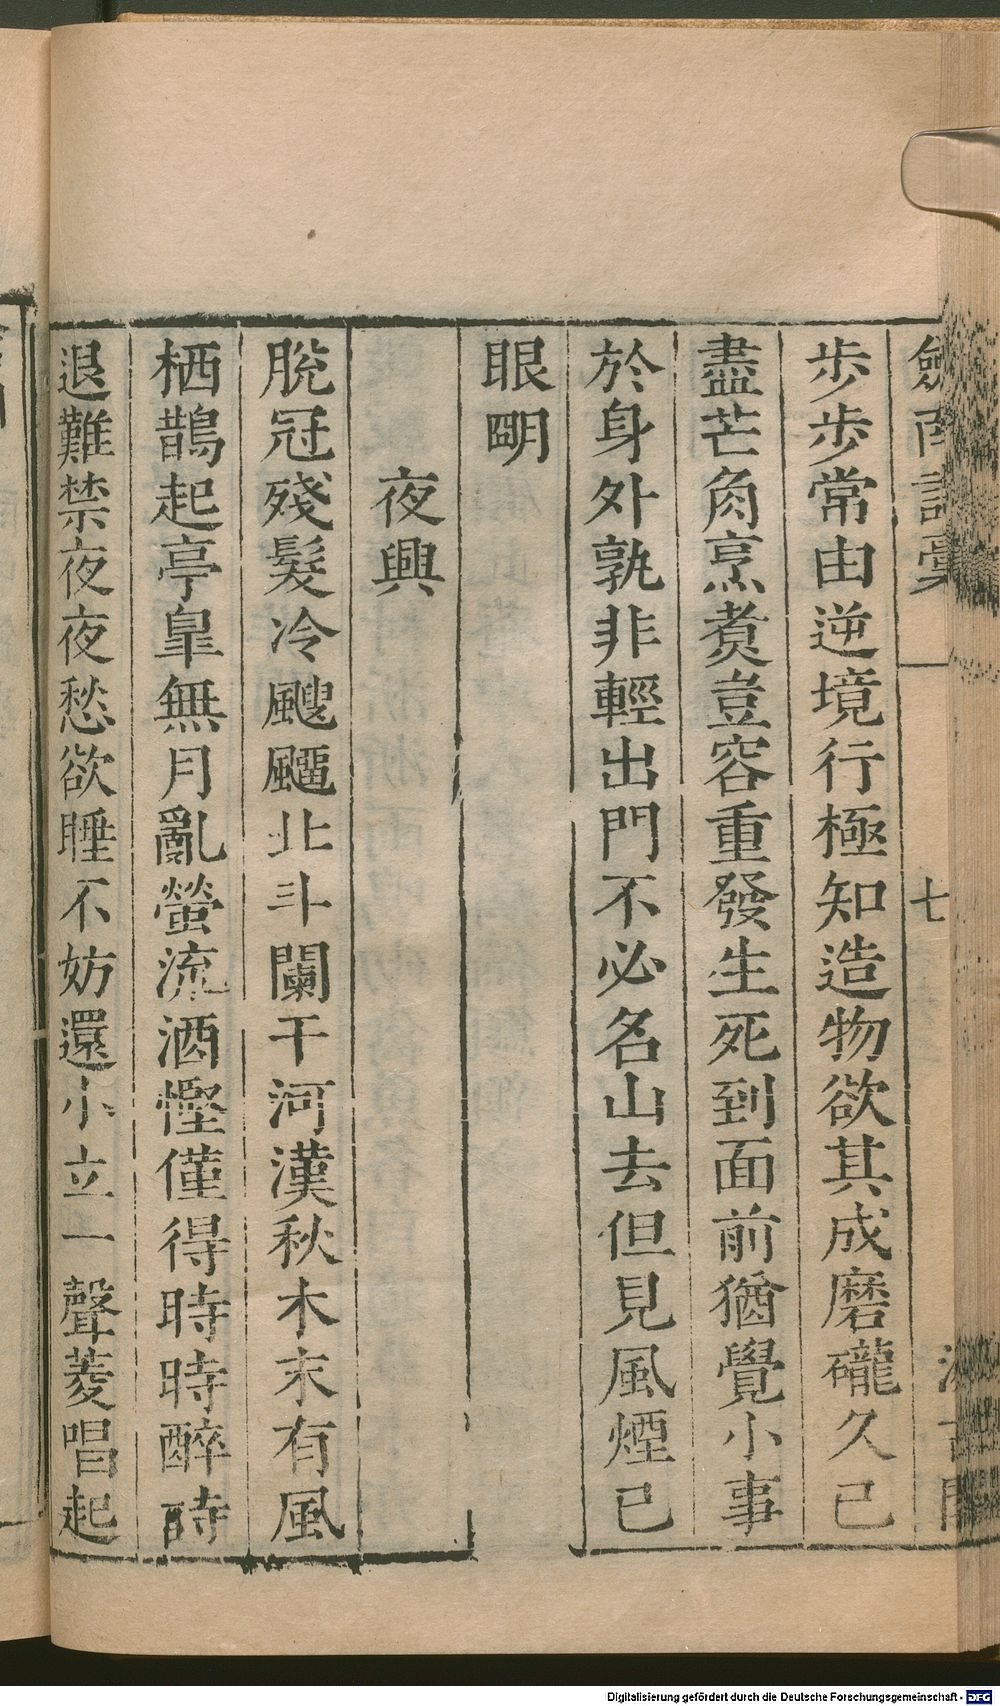 劍南詩稾 七 汲古閣
步步常由逆境行極知造物欲其成磨礲久已
盡芒角烹煑豈容重發生死到面前猶覺小事
於身外孰非輕出門不必名山去但見風煙已
眼朙
夜興
脫冠殘髮冷颼飀北斗闌干河漢秋木末有風
栖鵲起亭臯無月亂螢流酒慳僅得時時醉時
退難禁夜夜愁欲睡不妨還小立一聲菱唱起
Digitalisierung gefördert durch die Deutsche Forschungsgemeinschaft - DFG